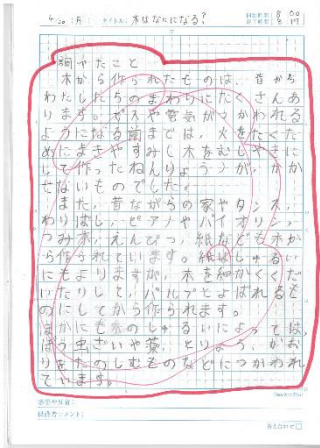 4/20（月） タイトル：木はなにになる？
開始時刻 8:00
終了時刻 8:19
調べたこと
木から作られたものは、昔から
わたしたちのまわりにたくさんあ
ります。ガスや電気がつかわれる
ようになる前までは、火をたくた
めにまきやすみ(木をむしやきに
して作ったねんりょう)が、かか
せないものでした。
また、昔ながらの家やタンス、
わりばし、ピアノやバイオリン、
つみ木、えんぴつ、紙なども木か
ら作られています。紙はしゅるい
にもよりますが、木を細かくくだ
いたりして、パルプとよばれるも
のにしてから作られます。
ほかにも木のしゅるいによっては、
ぼう虫ざいや薬、とりょう、かお
りをたのしむものなどにつかわれ
ています。
感想や反省：
保護者コメント：